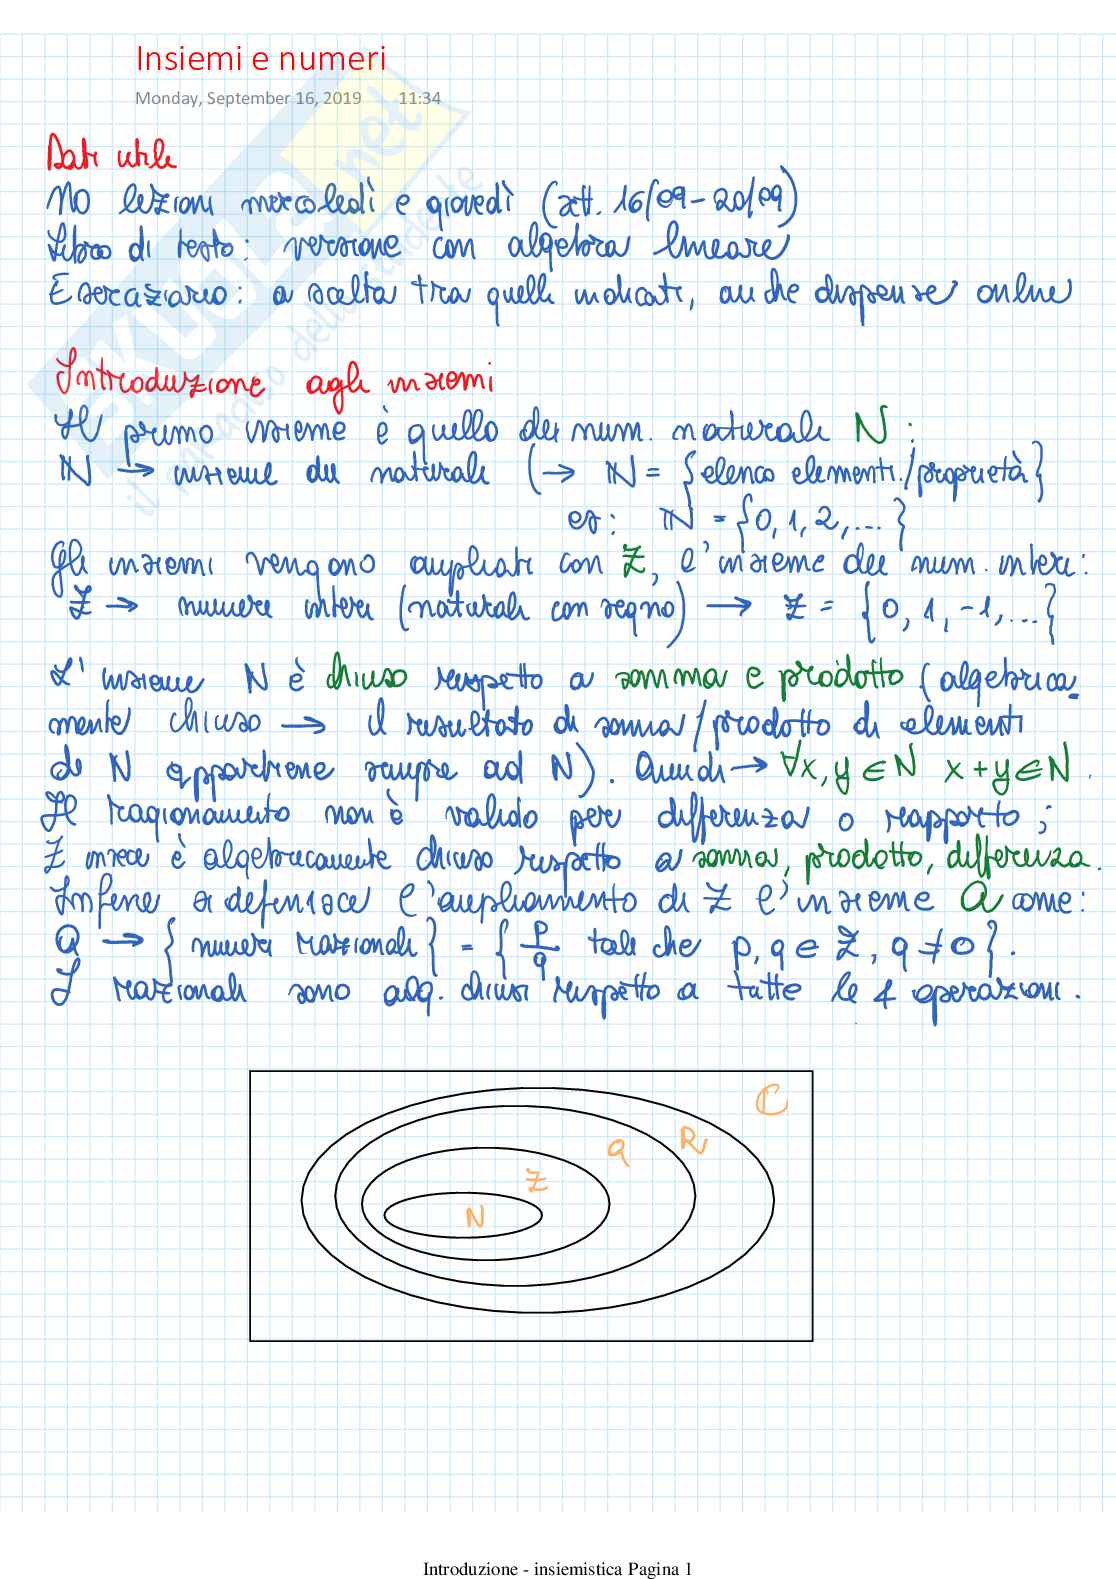 Insiemi e numeri
Monday, September 16, 2019 11:34
Dati utili
No lezioni mercoledì e giovedì (sett. 16/09-20/09)
Libro di testo: versione con algebra lineare
Eserciziario: a scelta tra quelli indicati, anche dispense online
Introduzione agli insiemi
Il primo insieme è quello dei num. naturali N:
ℕ → insieme dei naturali (→ ℕ = {elenco elementi/proprietà}
es: ℕ = {0, 1, 2, ...}
Gli insiemi vengono ampliati con ℤ, l'insieme dei num. interi:
ℤ → numeri interi (naturali con segno) → ℤ = {0, 1, -1, ...}
L'insieme N è chiuso rispetto a somma e prodotto (algebrica_
mente chiuso → il risultato di somma/prodotto di elementi
di N appartiene sempre ad N). Quindi → ∀x, y ∈ N x + y ∈ N.
Il ragionamento non è valido per differenza o rapporto;
ℤ invece è algebricamente chiuso rispetto a somma, prodotto, differenza.
Infine si definisce l'ampliamento di ℤ l'insieme Q come:
Q → {numeri razionali} = {p/q tali che p, q ∈ ℤ, q ≠ 0}.
I razionali sono alg. chiusi rispetto a tutte le 4 operazioni.
ℂ
R
Q
ℤ
N
Introduzione - insiemistica Pagina 1
SKUOLA.net
il paradiso dello studente